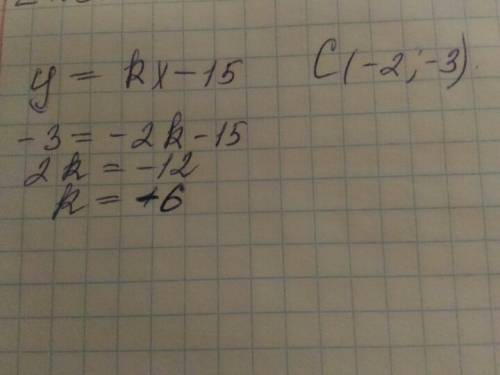 y = kx - 15 C(-2; -3).
-3 = -2k - 15
2k = -12
k = -6